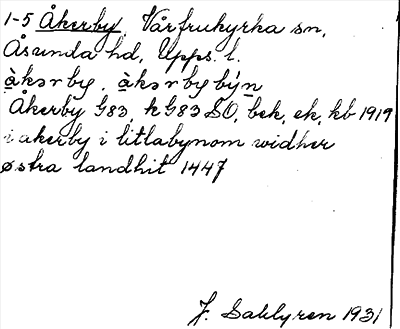 1-5 Åkerby, Vårfrukyrka sn,
Åsunda hd, Upps. l.
àkərby, àkərbybýn
Åkerby G83, kG83 SO, bek, ek, kb 1919
i akerby i litlabynom widher
østra landhit 1447
J. Sahlgren 1931